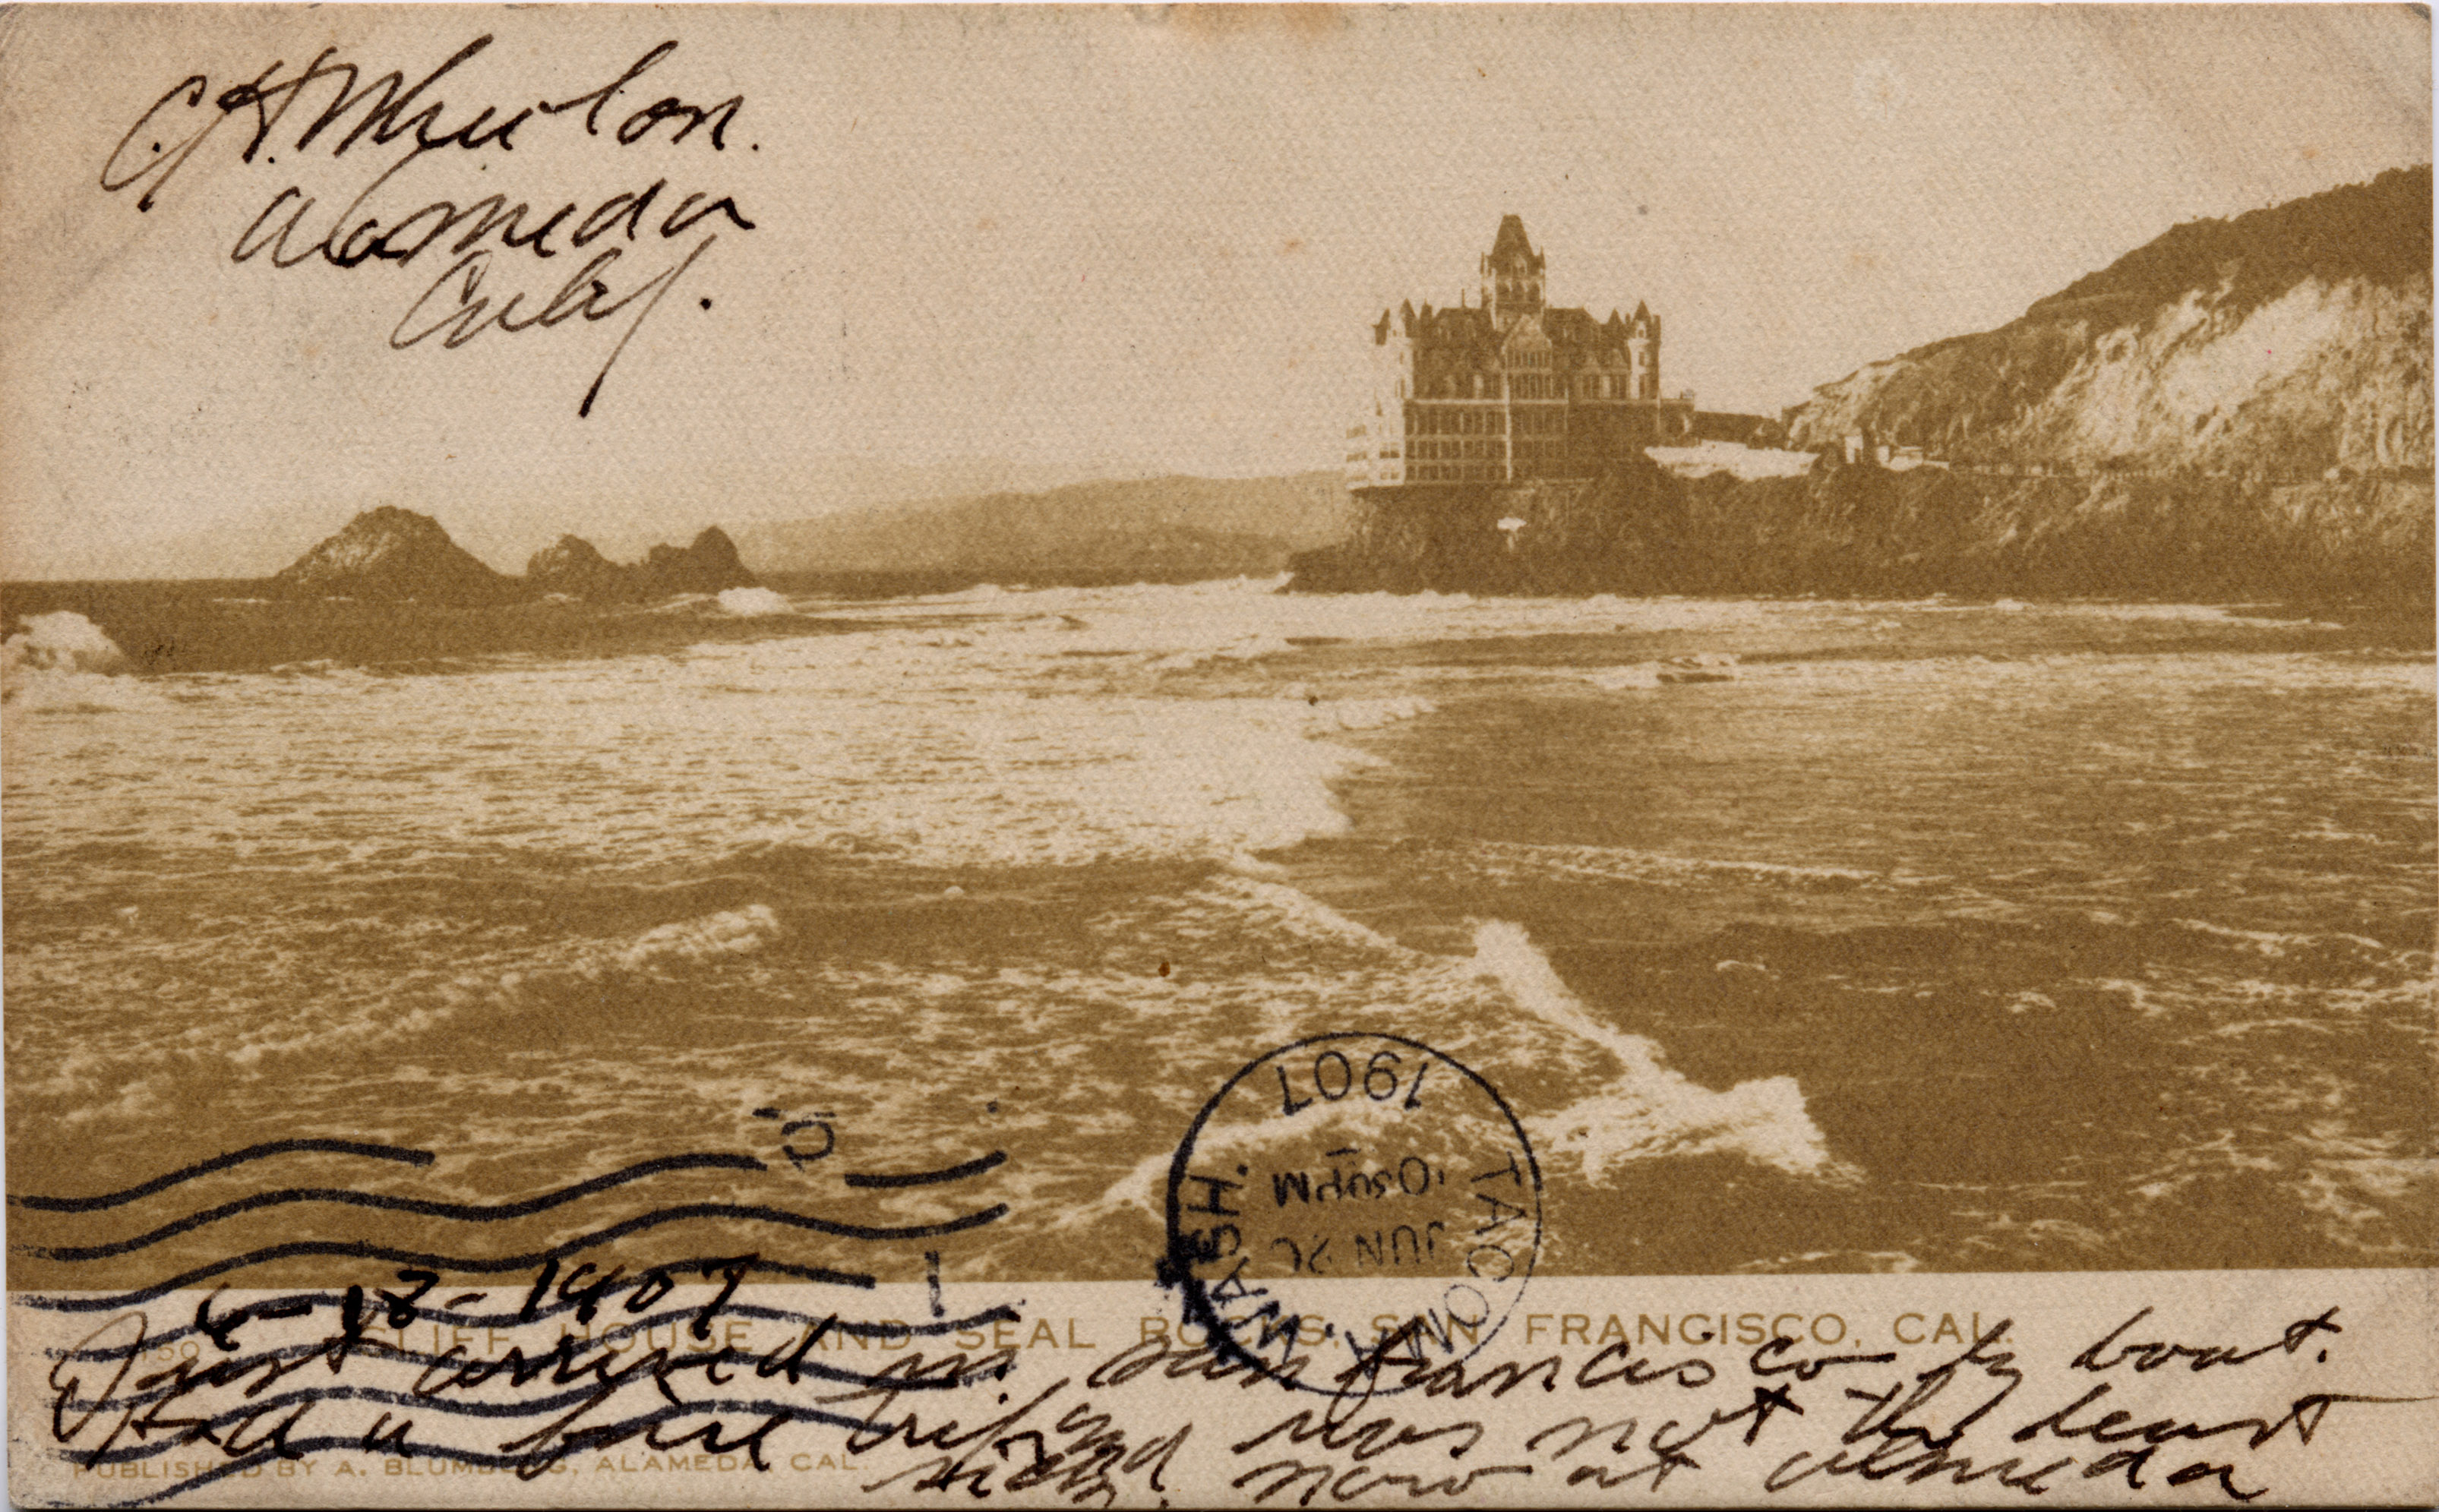 C. H. Wheelon.
Alameda
Calif.
1907
TACOMA, WASH.
JUN 20
PM
6-18-1907
CLIFF HOUSE AND SEAL ROCKS, SAN FRANCISCO, CAL.
Just arrived in San Francisco by boat.
Had a fine trip and was not the least
sick. now at Almeda
PUBLISHED BY A. BLUMBERG, ALAMEDA, CAL.